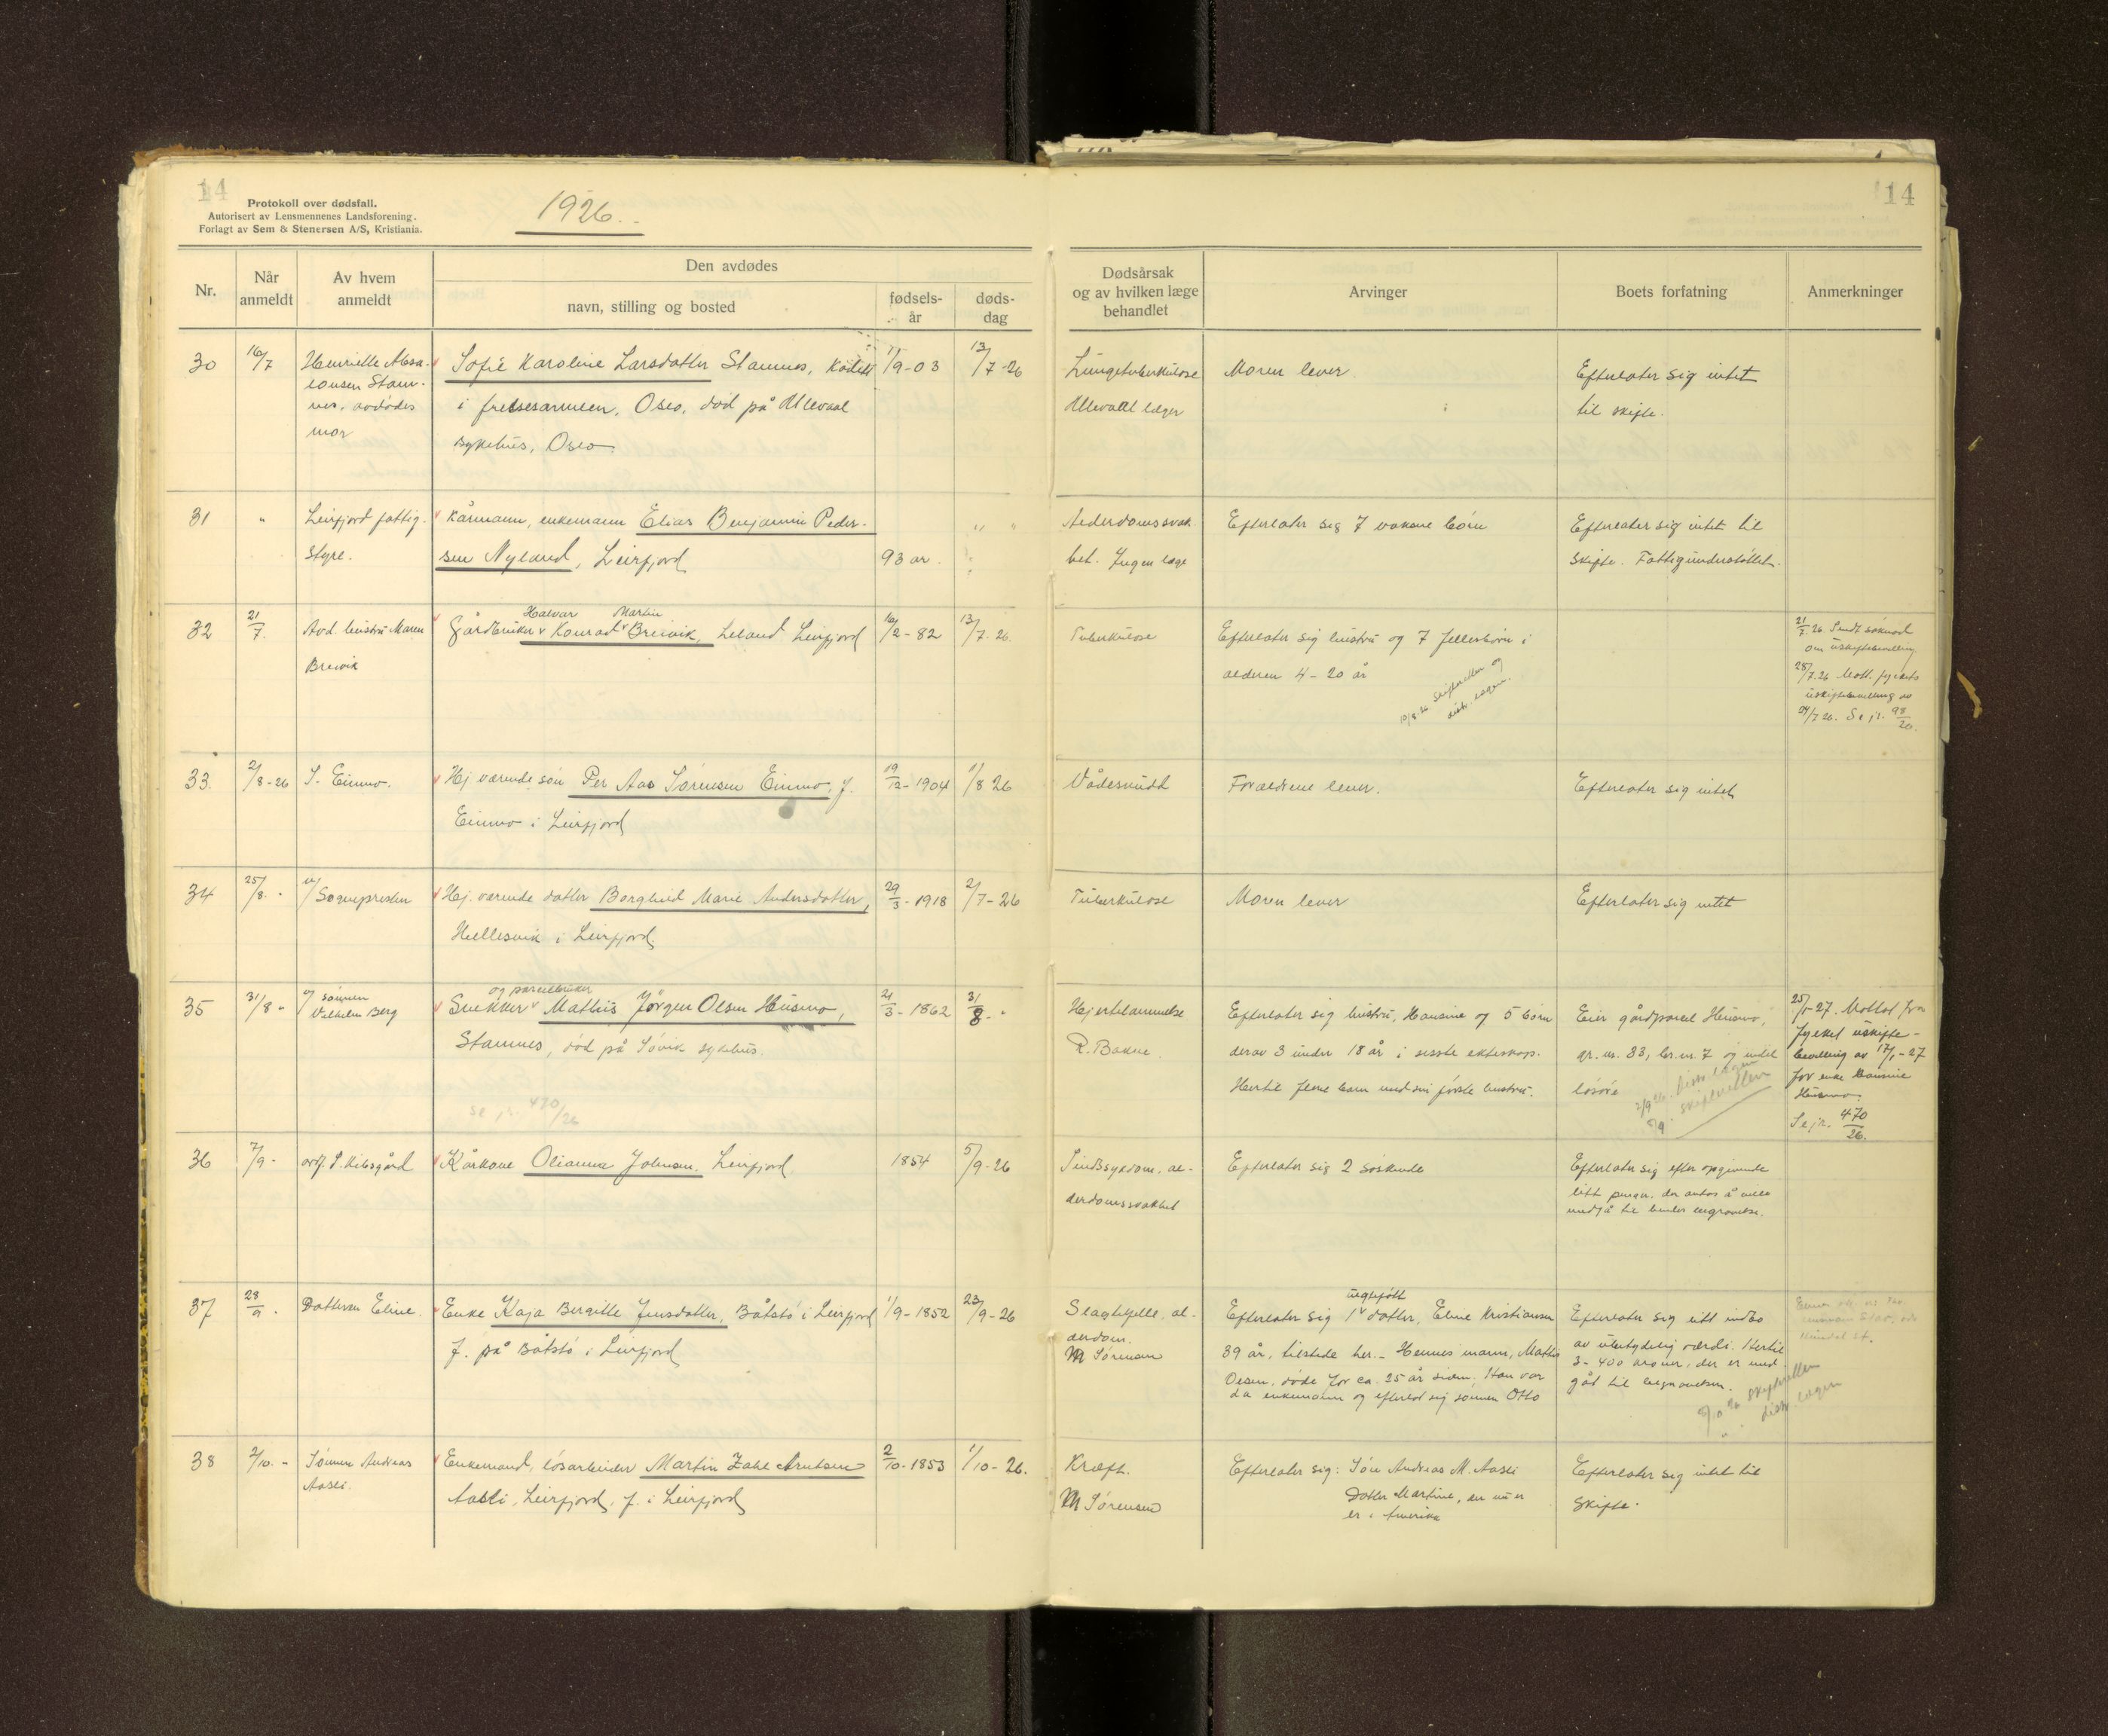 14
Protokoll over dødsfall.
Autorisert av Lensmennenes Landsforening.
Forlagt av Sem & Stenersen A/S, Kristiania.
1926.
14
Nr.
Når anmeldt
Av hvem anmeldt
Den avdødes
navn, stilling og bosted
fødsels-år
døds-dag
Dødsårsak og av hvilken læge behandlet
Arvinger
Boets forfatning
Anmerkninger
30 16/7 Henriette Absa- Sofie Karoline Larsdatter Stamnes, Kadett 1/9-03 13/7-26 Lungetuberkulose Moren lever. Efterlater sig intet
lonsen Stam- i frelsesarmeen, Oslo, død på Ullevaal Ullevaal læger til skifte.
nes, avdødes sykehus, Oslo
mor
31 " Leirfjord fattig- Kårmann, enkemann Elias Benjamin Peder- " " Alderdomssvak- Efterlater sig 7 voksne børn Efterlater sig intet til
styre. sen Nyland, Leirfjord 93 år. het. Ingen læge skifte. Fattigunderstøttet.
Halvar Martin
32 21/7. Avd. hustru Maren Gårdbruker Konrad Breivik, Leland Leirfjord 16/2-82 13/7-26. Tuberkulose Efterlater sig hustru og 7 fellesbørn i 21/7.26 Sendt søknad
Breivik alderen 4-20 år om uskiftebevilling
10/8.26 skifteretten og 28/7.26 Mott. fylkets
distr. lægen. uskiftebevilling av
24/7 26. Se jr. 98/20.
33. 2/8-26 S. Einmo. Hj. værende søn Per Aas Sørensen Einmo, f. 19/12-1904 1/8 26 Vådeskudd Forældrene lever. Efterlater sig intet
Einmo i Leirfjord
34 25/8. - Sognepresten Hj. værende datter Borghild Marie Andersdatter, 29/3-1918 2/7-26 Tuberkulose Moren lever Efterlater sig intet
Hellesvik i Leirfjord
og parcelbruker
35 31/8 " sønnen Snekker Mathis Jørgen Olsen Husmo, 21/3-1862 31/8-" Hjertelammelse Efterlater sig hustru, Hansine og 5 børn Eier gårdparcel Husmo, 25/1-27. Mottat fra
Vilhelm Berg Stamnes, død på Søvik sykehus. R. Bakne. derav 3 under 18 år i sisste ekteskap. gr. nr. 33, br. nr. 7 og intet fylket uskifte-
Hertil flere barn med sin første hustru. løsøre bevilling av 17/1-27
for enke Hansine
Husmo.
2/9 26. distr. lægen
skifteretten
se jr. 470/26
Se jr. 470/26.
36 7/9- ordf. P. Kibsgård Kårkone Olianna Johnsen, Leirfjord. 1854 5/9-26 Sindssykdom, al- Efterlater sig 2 søskende Efterlater sig efter opgivende
derdomssvakhet litt penger, der antas å ville
medgå til hendes begravelse.
37 28/9. Datteren Eline. Enke Kaja Bergitte Jensdatter, Båtstø i Leirfjord 1/9-1852 23/9-26 Slagtilfelle, al- Efterlater sig 1 datter, Eline Kristiansen Efterlater sig litt indbo
uektefødt
f. på Båtstø i Leirfjord derdom. 39 år, tilstede her. - Hennes mann, Mathis av ubetydelig værdi. Hertil
M Sørensen Olsen, døde for ca. 25 år siden. Han var 3-400 kroner, der er med-
da enkemann og efterlot sig sønnen Otto gåt til begravelsen.
skifteretten
distr. lægen
38 2/10. - Sønnen Andreas Enkemand, løsarbeider Martin Zahl Arntsen 2/10-1853 1/10-26. Kræft. Efterlater sig: Søn Andreas M. Aasli Efterlater sig intet til
Aasli. Aasli, Leirfjord, f. i Leirfjord M Sørensen Datter Martine, en nu er skifte.
er i Amerika